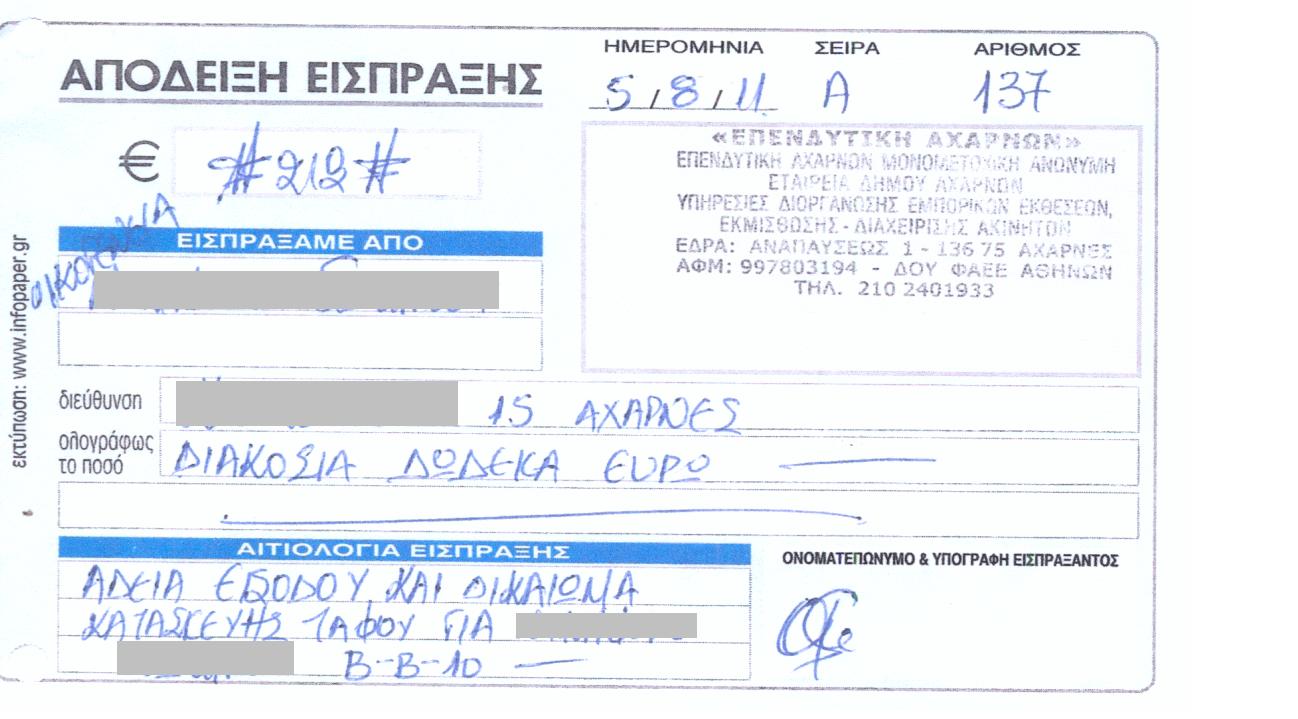 ΑΠΟΔΕΙΞΗ ΕΙΣΠΡΑΞΗΣ
ΗΜΕΡΟΜΗΝΙΑ ΣΕΙΡΑ ΑΡΙΘΜΟΣ
5/8/11 Α 137
€ #212#
«ΕΠΕΝΔΥΤΙΚΗ ΑΧΑΡΝΩΝ»
ΕΠΕΝΔΥΤΙΚΗ ΑΧΑΡΝΩΝ ΜΟΝΟΜΕΤΟΧΙΚΗ ΑΝΩΝΥΜΗ
ΕΤΑΙΡΕΙΑ ΔΗΜΟΥ ΑΧΑΡΝΩΝ
ΥΠΗΡΕΣΙΕΣ ΔΙΟΡΓΑΝΩΣΗΣ ΕΜΠΟΡΙΚΩΝ ΕΚΘΕΣΕΩΝ,
ΕΚΜΙΣΘΩΣΗΣ - ΔΙΑΧΕΙΡΙΣΗΣ ΑΚΙΝΗΤΩΝ
ΕΔΡΑ: ΑΝΑΠΑΥΣΕΩΣ 1 - 136 75 ΑΧΑΡΝΕΣ
ΑΦΜ: 997803194 - ΔΟΥ ΦΑΕΕ ΑΘΗΝΩΝ
ΤΗΛ. 210 2401933
ΕΙΣΠΡΑΞΑΜΕ ΑΠΟ
διεύθυνση 15 ΑΧΑΡΝΕΣ
ολογράφως
το ποσό ΔΙΑΚΟΣΙΑ ΔΩΔΕΚΑ ΕΥΡΩ
ΑΙΤΙΟΛΟΓΙΑ ΕΙΣΠΡΑΞΗΣ
ΑΔΕΙΑ ΕΙΣΟΔΟΥ ΚΑΙ ΔΙΚΑΙΩΜΑ
ΚΑΤΑΣΚΕΥΗΣ ΤΑΦΟΥ ΓΙΑ
Β-Β-10
ΟΝΟΜΑΤΕΠΩΝΥΜΟ & ΥΠΟΓΡΑΦΗ ΕΙΣΠΡΑΞΑΝΤΟΣ
εκτύπωση: www.infopaper.gr